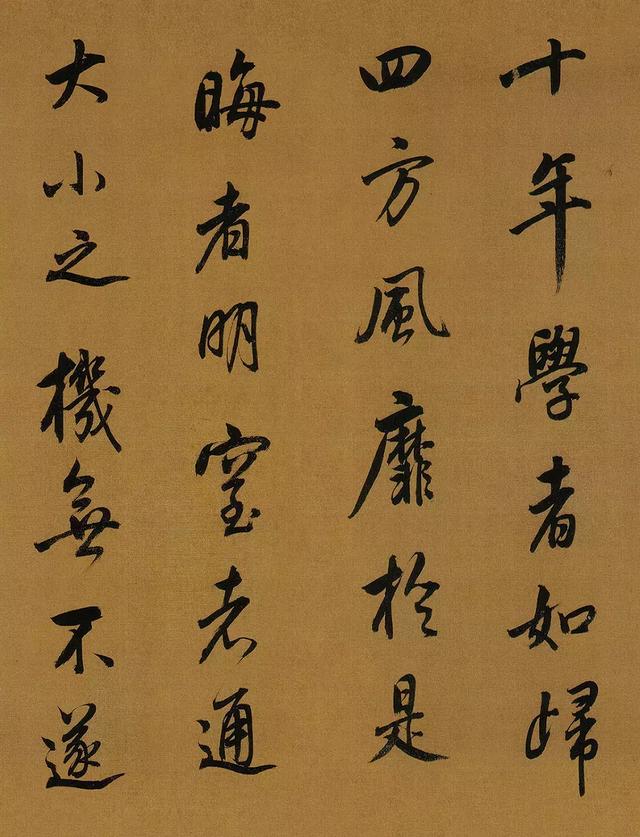 十年學者如歸
四方風靡於是
晦者明窒者通
大小之機無不遂